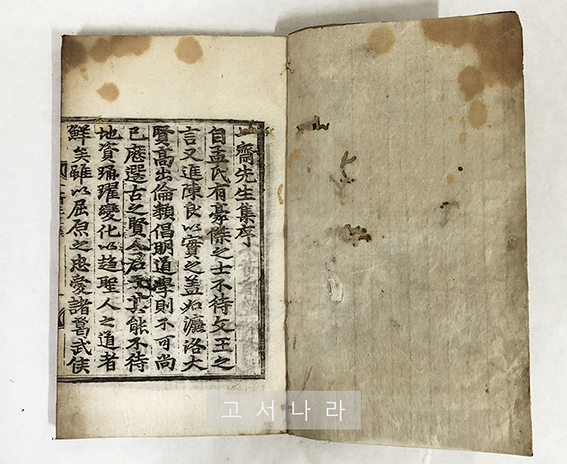 一齋先生集序
自孟氏有豪傑之士不待文王之
言又進陳良以實之蓋如濂洛大
賢高出倫類倡明道學則不可尚
已歷選古之賢人君子其能不待
地資踴躍變化以趨聖人之道者
鮮矣雖以屈原之忠愛諸葛武侯
고서나라